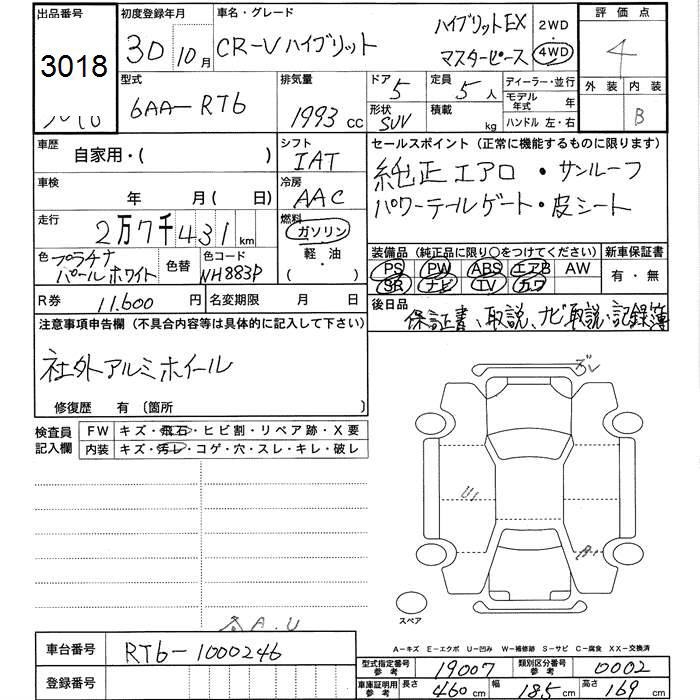 出品番号
3018
初度登録年月
30 10月
車名・グレード
CR-V ハイブリット
ハイブリットEX
マスターピース
2WD
・
4WD
評価点
4
外装 内装
B
型式
6AA-RT6
排気量
1993 cc
ドア 5
形状 SUV
定員 5人
積載 kg
ディーラー・並行
モデル年式 年
ハンドル 左・右
車歴
自家用・( )
シフト
IAT
セールスポイント (正常に機能するものに限ります)
純正エアロ・サンルーフ
パワーテールゲート・皮シート
車検
年 月( 日)
冷房
AAC
走行
2万7千431km
燃料
ガソリン
軽・油
・( )
色 プラチナ
パールホワイト
色替
色コード
NH883P
装備品 (純正品に限り○をつけてください)
PS PW ABS エアB AW
SR ナビ TV カワ
新車保証書
有・無
R券 11,600 円
名変期限 月 日
後日品
保証書、取説、ナビ取説・記録簿
注意事項申告欄 (不具合内容等は具体的に記入して下さい)
社外アルミホイール
修復歴 有〔箇所 〕
検査員
記入欄
FW キズ・飛石・ヒビ割・リペア跡・X要
内装 キズ・汚レ・コゲ・穴・スレ・キレ・破レ
ズレ
U1
A1
スペア
A.U
A-キズ E-エクボ U-凹み W-補修跡 S-サビ C-腐食 XX-交換済
車台番号
RT6-1000246
登録番号
型式指定番号
参考
19007
類別区分番号
参考
0002
車庫証明用
参考
長さ 460 cm
幅 185 cm
高さ 169 cm